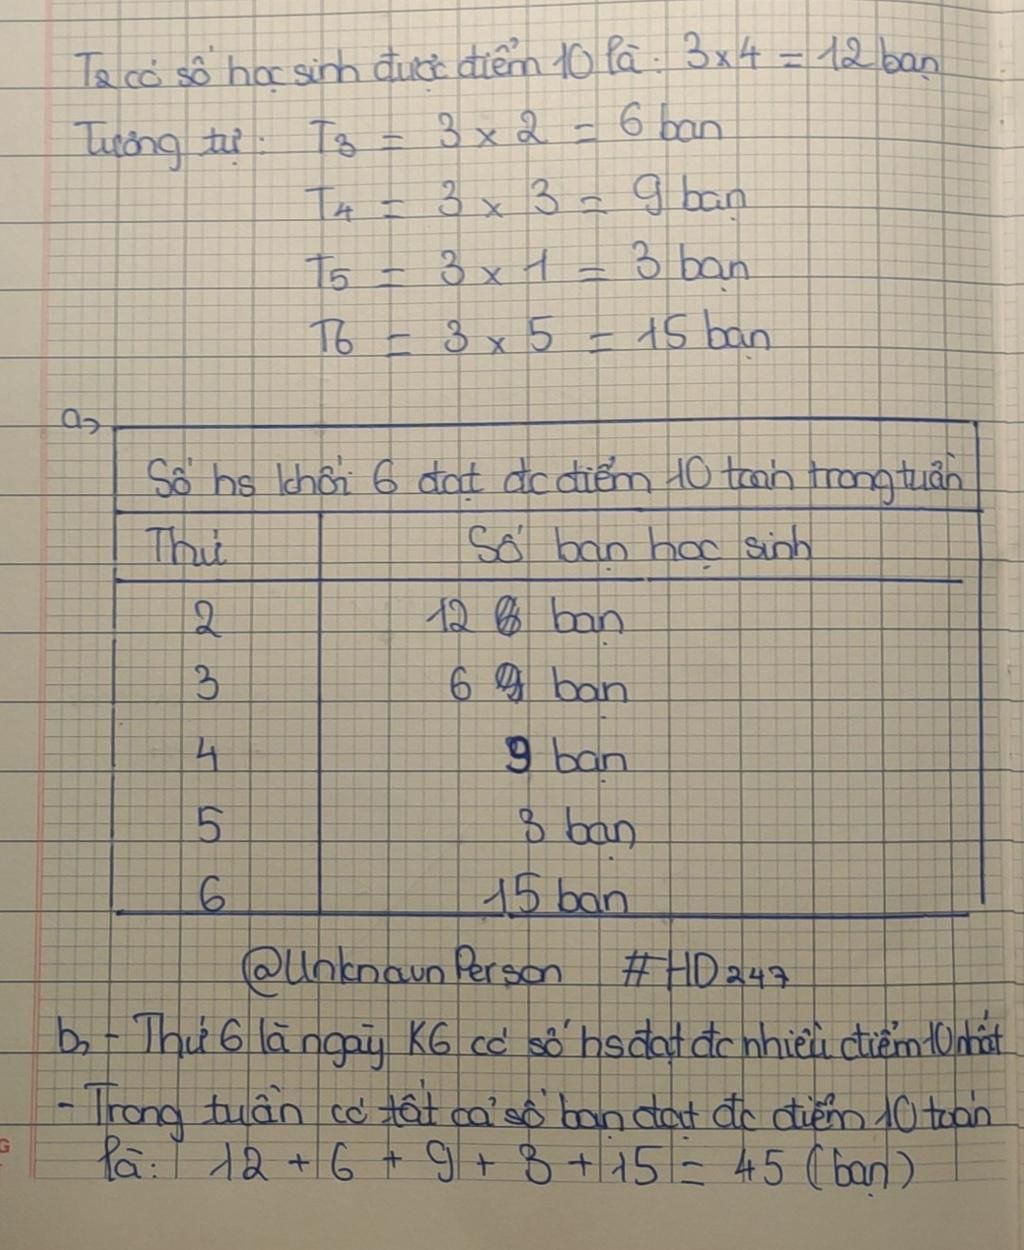 T2 có số học sinh được điểm 10 là: 3 x 4 = 12 bạn
Tương tự: T3 = 3 x 2 = 6 bạn
T4 = 3 x 3 = 9 bạn
T5 = 3 x 1 = 3 bạn
T6 = 3 x 5 = 15 bạn
a,
Số hs khối 6 đạt đc điểm 10 toán trong tuần
Thứ Số bạn học sinh
2 12 bạn
3 6 bạn
4 9 bạn
5 3 bạn
6 15 bạn
@UnknownPerson #HD247
b, - Thứ 6 là ngày K6 có số hs đạt đc nhiều điểm 10 nhất
- Trong tuần có tất cả số bạn đạt đc điểm 10 toán
là: 12 + 6 + 9 + 3 + 15 = 45 (bạn)